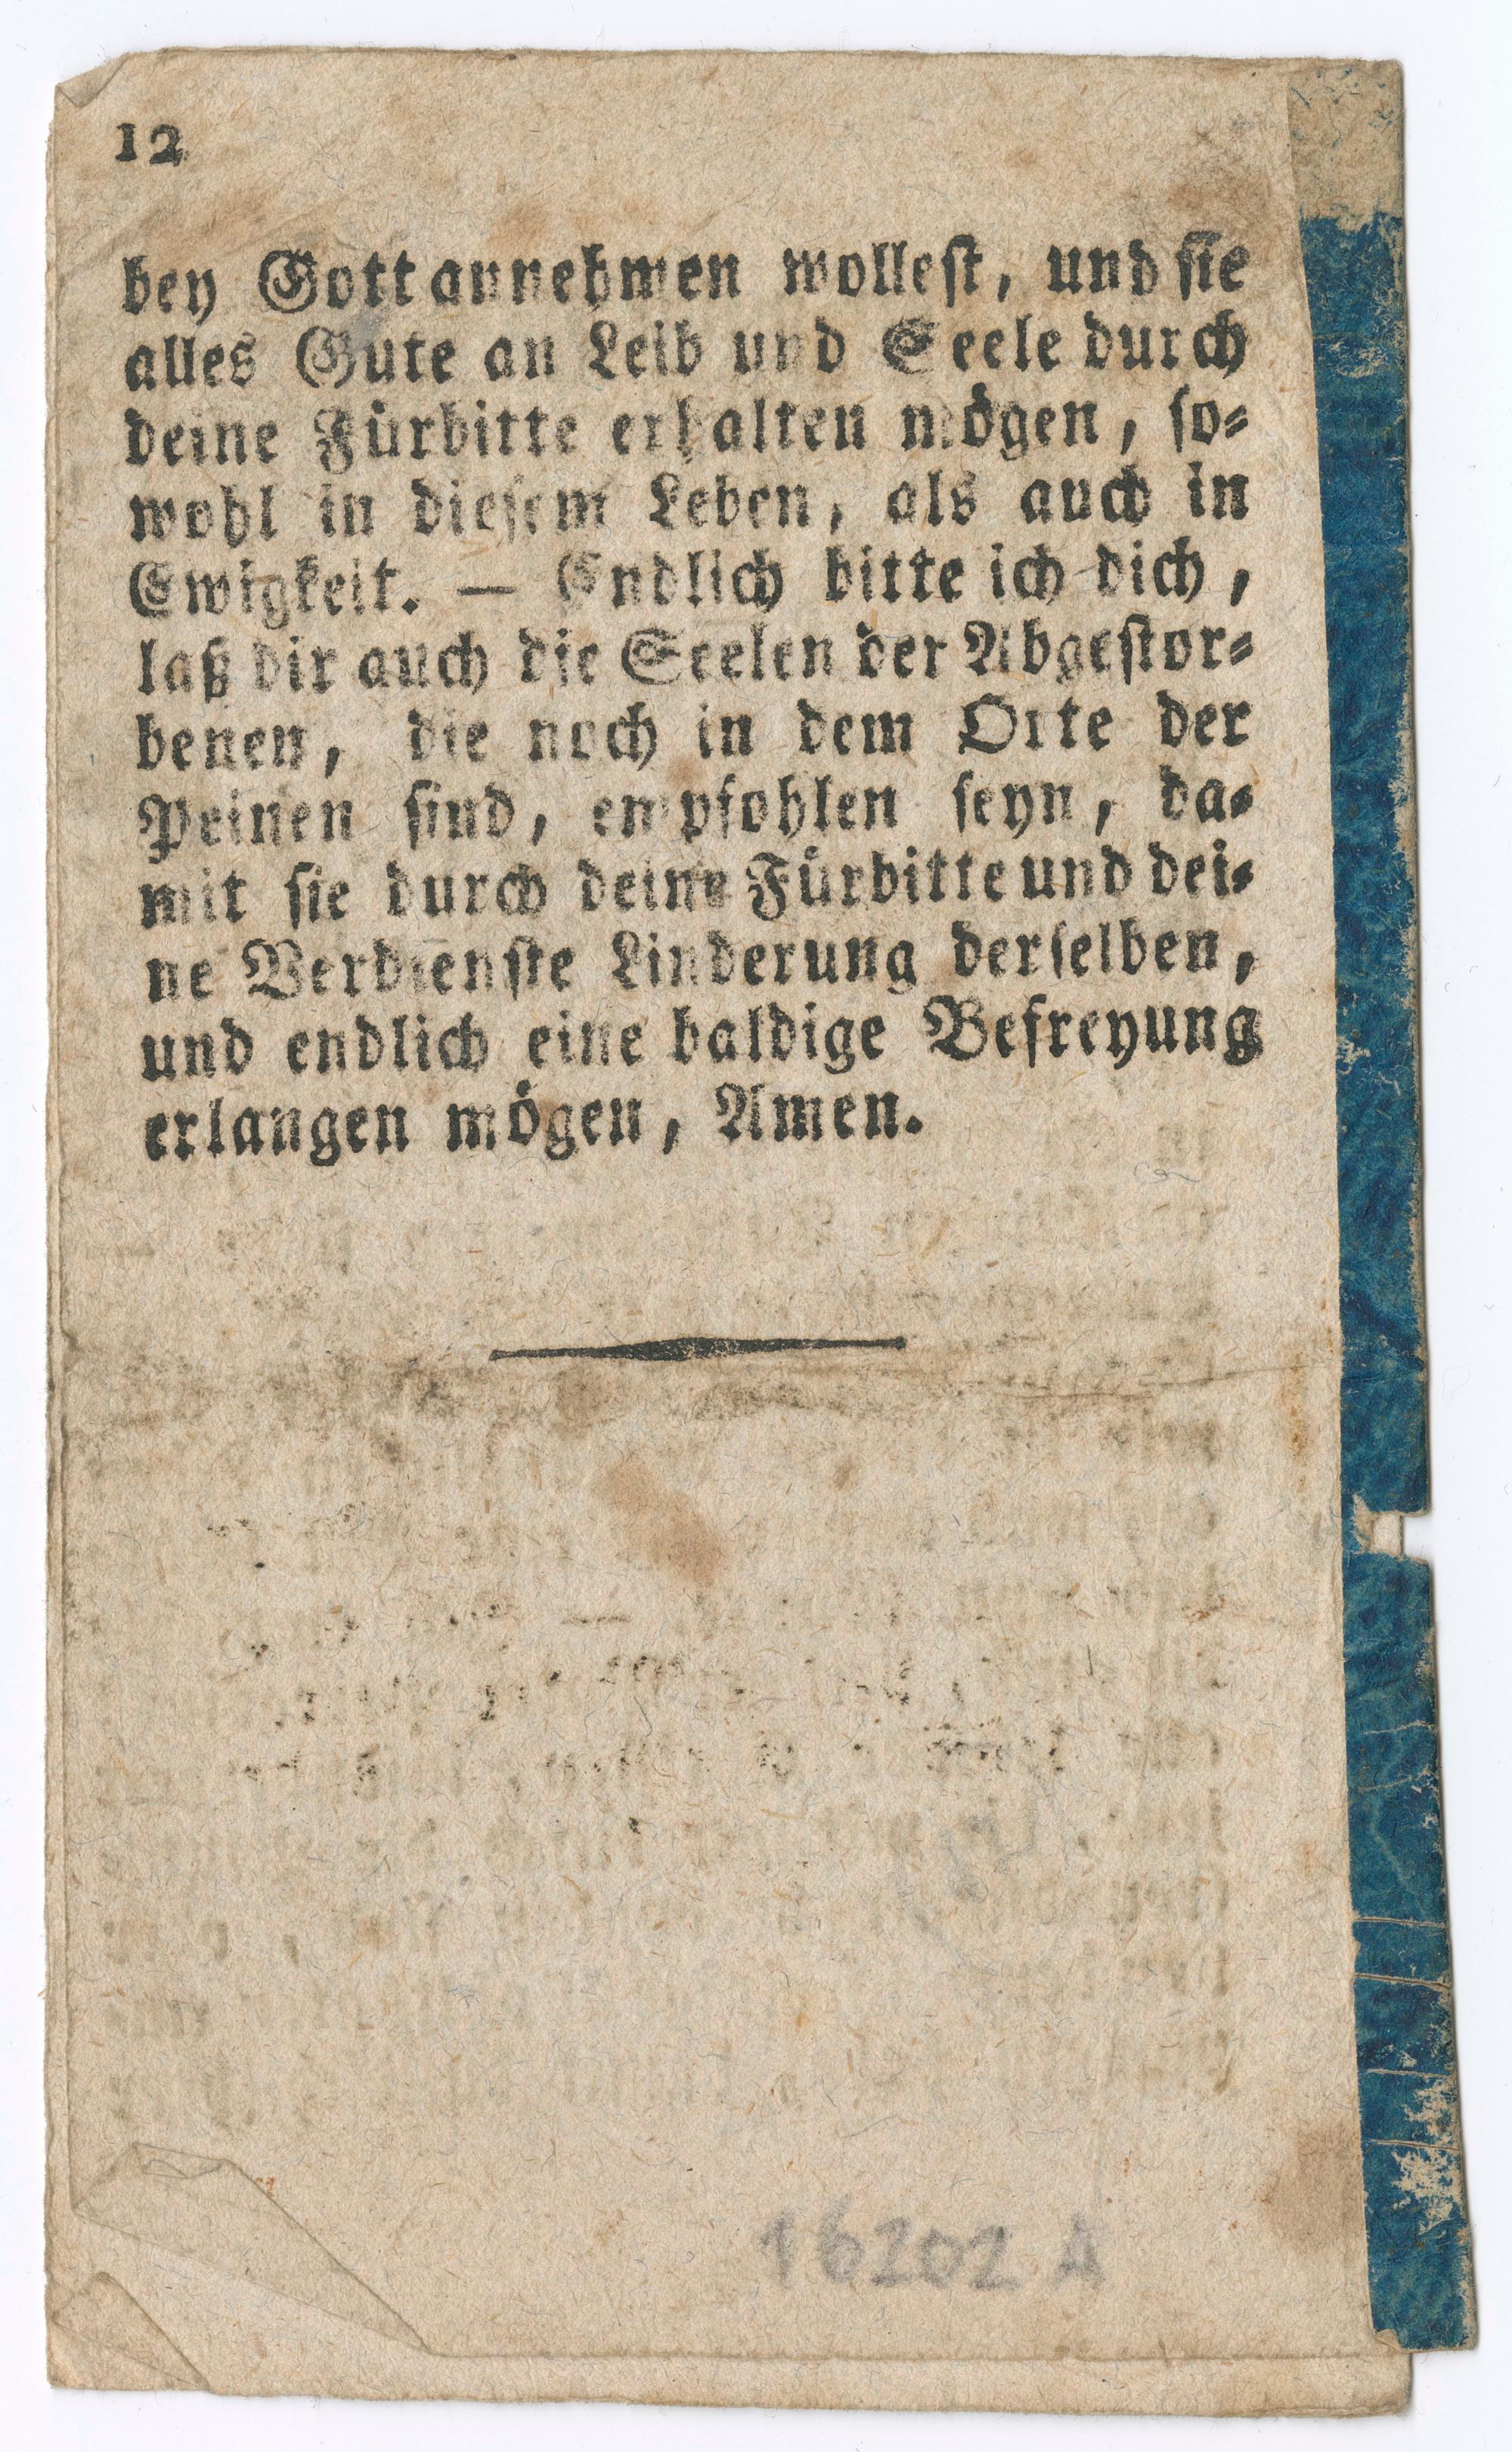 12
bey Gott annehmen wollest, und sie
alles Gute an Leib und Seele durch
deine Fürbitte erhalten mögen, so⸗
wohl in diesem Leben, als auch in
Ewigkeit. — Endlich bitte ich dich,
laß dir auch die Seelen der Abgestor⸗
benen, die noch in dem Orte der
Peinen sind, empfohlen seyn, da⸗
mit sie durch deine Fürbitte und dei⸗
ne Verdienste Linderung derselben,
und endlich eine baldige Befreyung
erlangen mögen, Amen.
16202 A